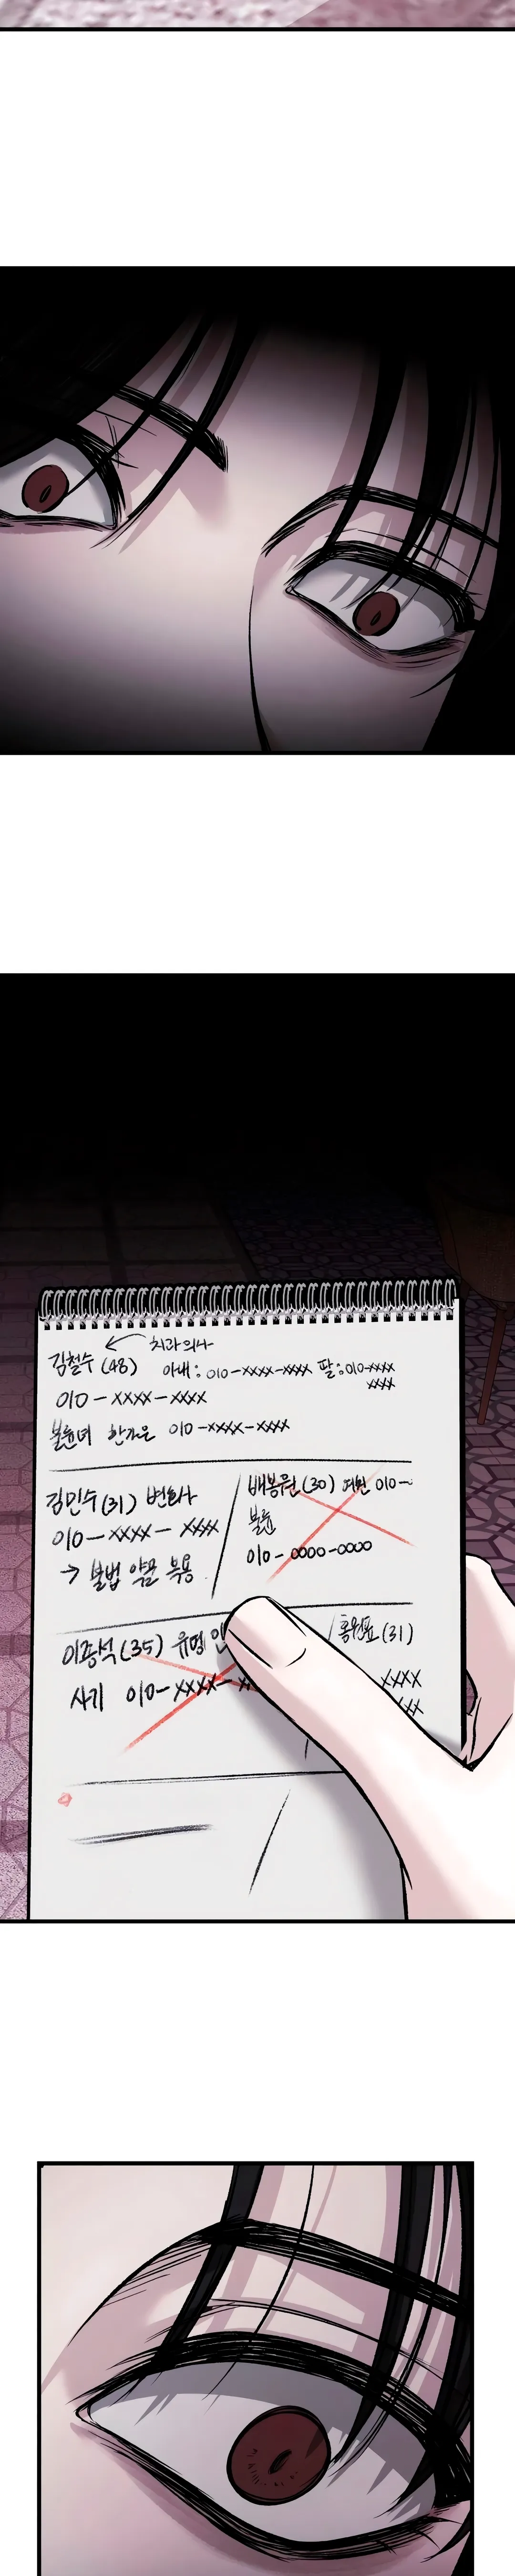 치과의사
김철수 (48) 아내 : 010-XXXX-XXXX 딸 : 010-XXXX
XXXX
010-XXXX-XXXX
불륜녀 한가은 010-XXXX-XXXX
김민수 (31) 변호사
010-XXXX-XXXX
→ 불법 약물 복용
배봉원 (30) 010-
불륜
010-0000-0000
이종석 (35) 유명 인
사기 010-XXXX-
(31)
XXXX
XX